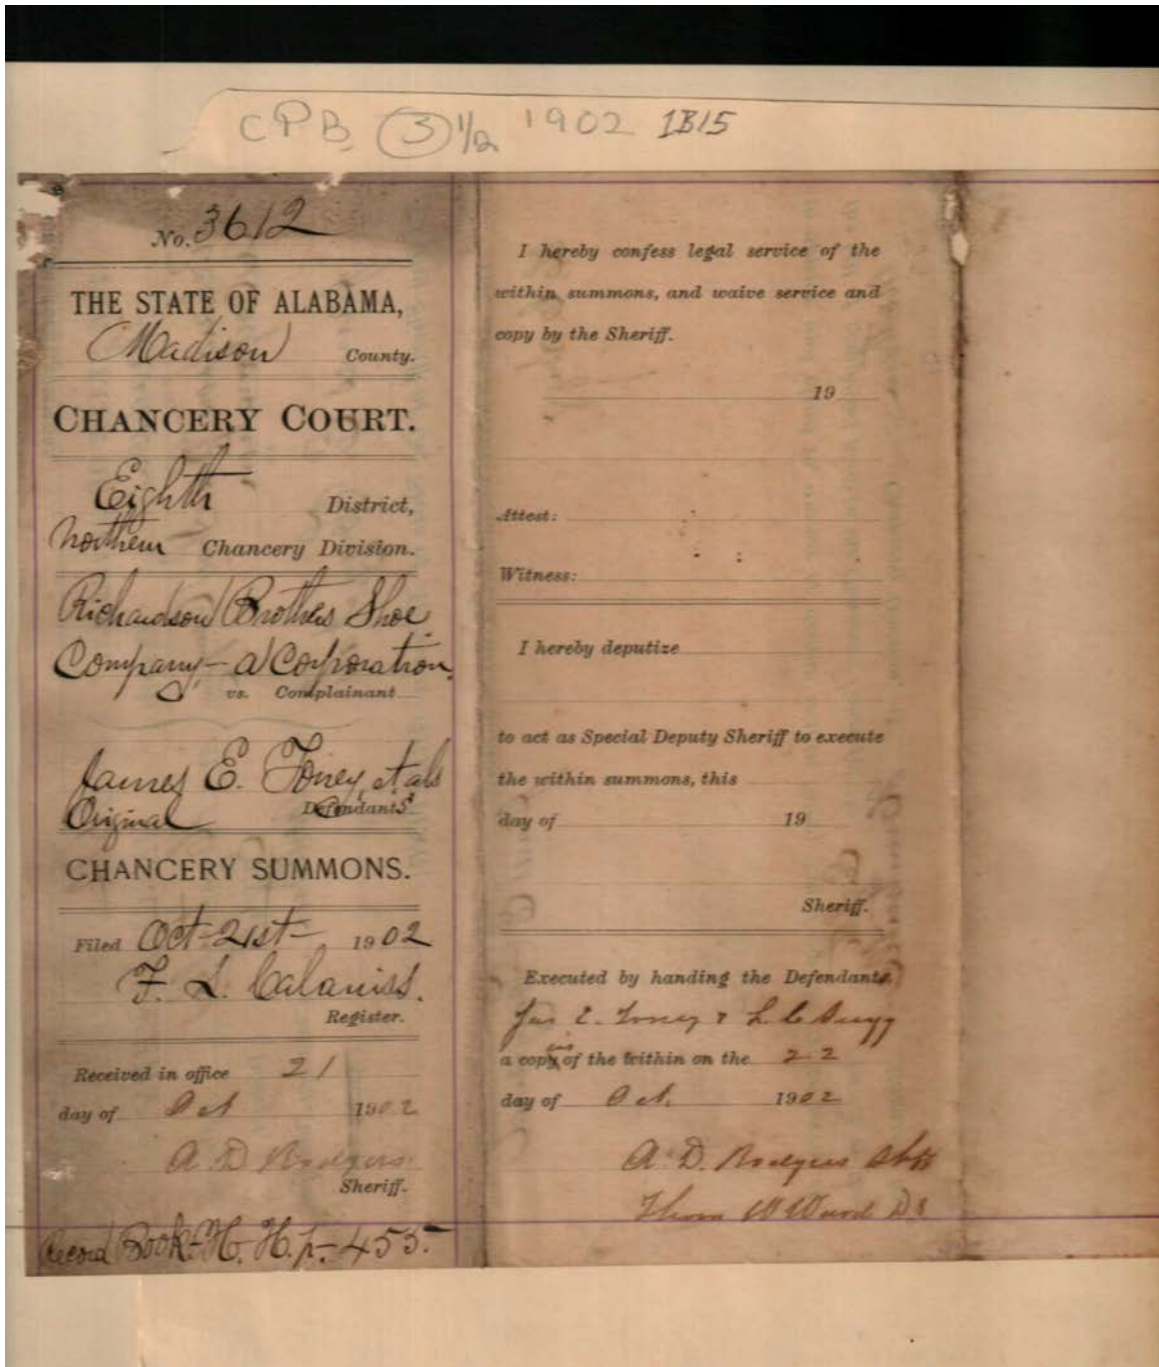 CPB (3) 1/2 1902 IB15
No. 3612
THE STATE OF ALABAMA,
Madison County.
CHANCERY COURT.
Eighth District,
Northern Chancery Division.
Richardson Brothers Shoe
Company,- a Corporation,
vs. Complainant
James E. Toney, et als
Original Defendants.
CHANCERY SUMMONS.
Filed Oct-21st- 1902
F. L.
Register.
Received in office 21
day of Oct 1902
A. D. Rodgers
Sheriff.
Record Book-H. H. p-455.
I hereby confess legal service of the
within summons, and waive service and
copy by the Sheriff.
19
Attest:
Witness:
I hereby deputize
to act as Special Deputy Sheriff to execute
the within summons, this
day of 19
Sheriff.
Executed by handing the Defendants
Jas E. Toney & L C Sugg
a copy of the within on the 22
day of Oct. 1902
A. D. Rodgers Shff
W Ward DS